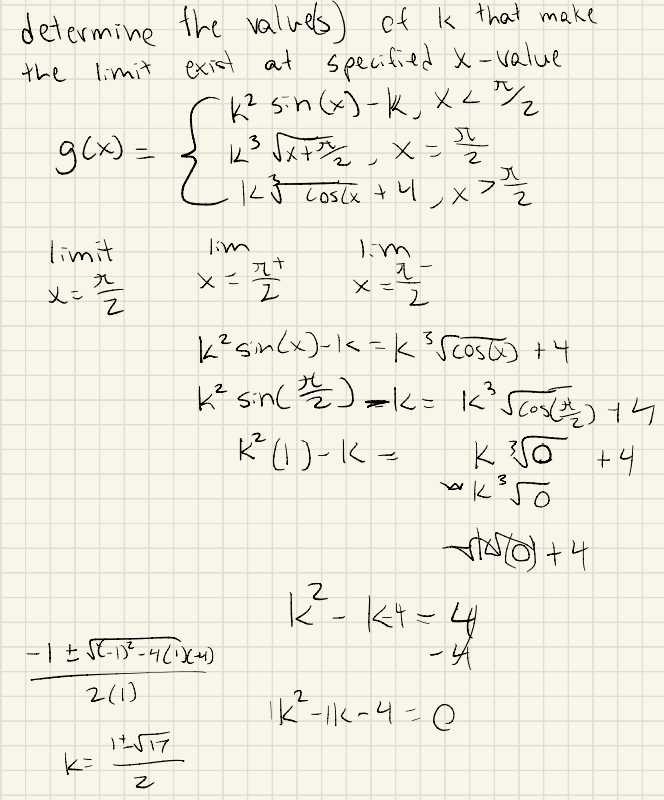 determine the value(s) of k that make
the limit exist at specified x-value
g(x) = { k² sin(x) - k, x < π/2
k³ √x+π/2 , x = π/2
k ∛cos(x + 4 , x > π/2
limit x = π/2 lim x = π/2⁺ lim x = π/2⁻
k² sin(x) - k = k ³√cos(x) + 4
k² sin(π/2) - k = k ³√cos(π/2) + 4
k² (1) - k = k ³√0 + 4
k ³√0
(0) + 4
k² - k-4 = 4
-4
-1 ± √(-1)² - 4(1)(-4)
2(1)
1k² - 1k - 4 = 0
k = 1±√17
2